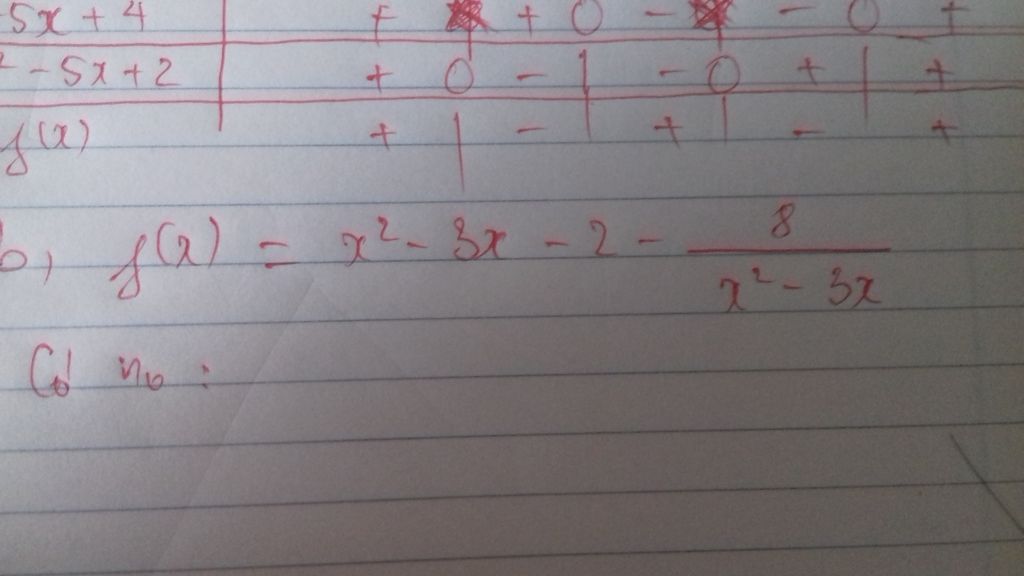 5x + 4 + + 0 - - 0 +
² - 5x + 2 + 0 - | - 0 + | +
f(x) + | - | + | - +
b, f(x) = x² - 3x - 2 - 8/(x² - 3x)
Có no :